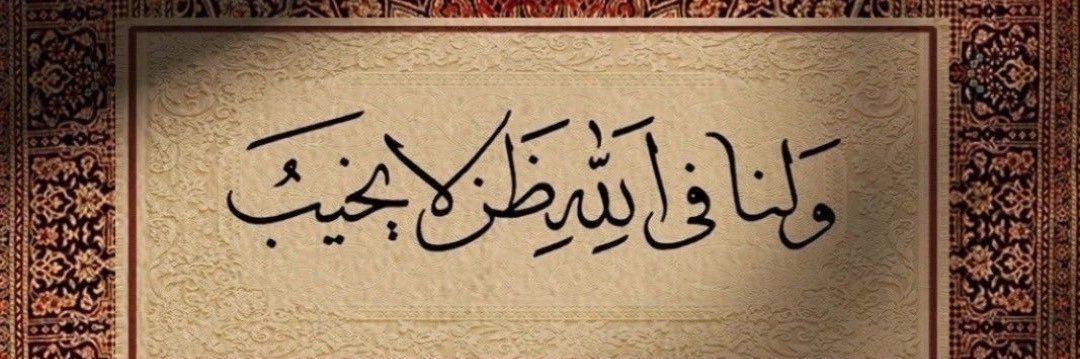 وَلنا في اللَّهِ ظَنٌ لا يخيبُ